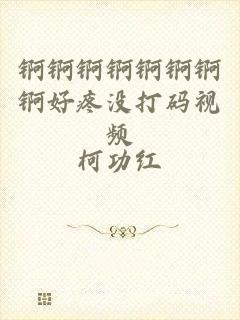 锕锕锕锕锕锕锕
锕好疼没打码视
频
柯功红